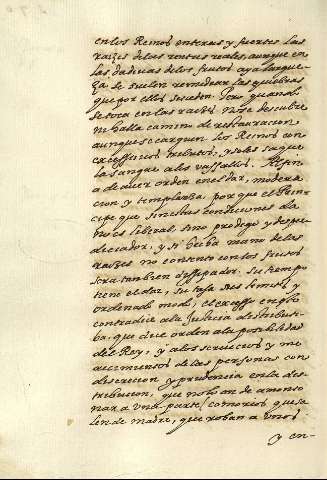 en los Reinos enteras y fuertes las
raizes de las rentas reales, aunque en
las dadivas de los frutos aya largue-
za se suelen remediar las quiebras
que por ellos suceden. Pero quando
se toca en las raizes no se descubre
ni halla camino de restauracion
aunque se carguen los Reinos con
excessivos tributos, y se les saque
la sangre a los vassallos. Al fin
a de aver orden en el dar, modera
cion y templanza, porque el Prin
cipe que sin estas condiciones da
no es liberal, sino prodigo y despe
diciador, y si heiba mano de las
raizes no contento con los frutos
sera tambien dissipador, su tiempo
tiene el dar, su tasa sus limites y
ordenado modo, el excesso en esto
contradice a la Justicia distributi-
ba, que dice orden a la posibilidad
del Rey, y a los servicios y me
recimientos de las personas con
discrecion y prudencia en la des-
tribucion, que no han de amonto
nar a una parte, como rios que sa
len de madre, que roban a unos
y en-